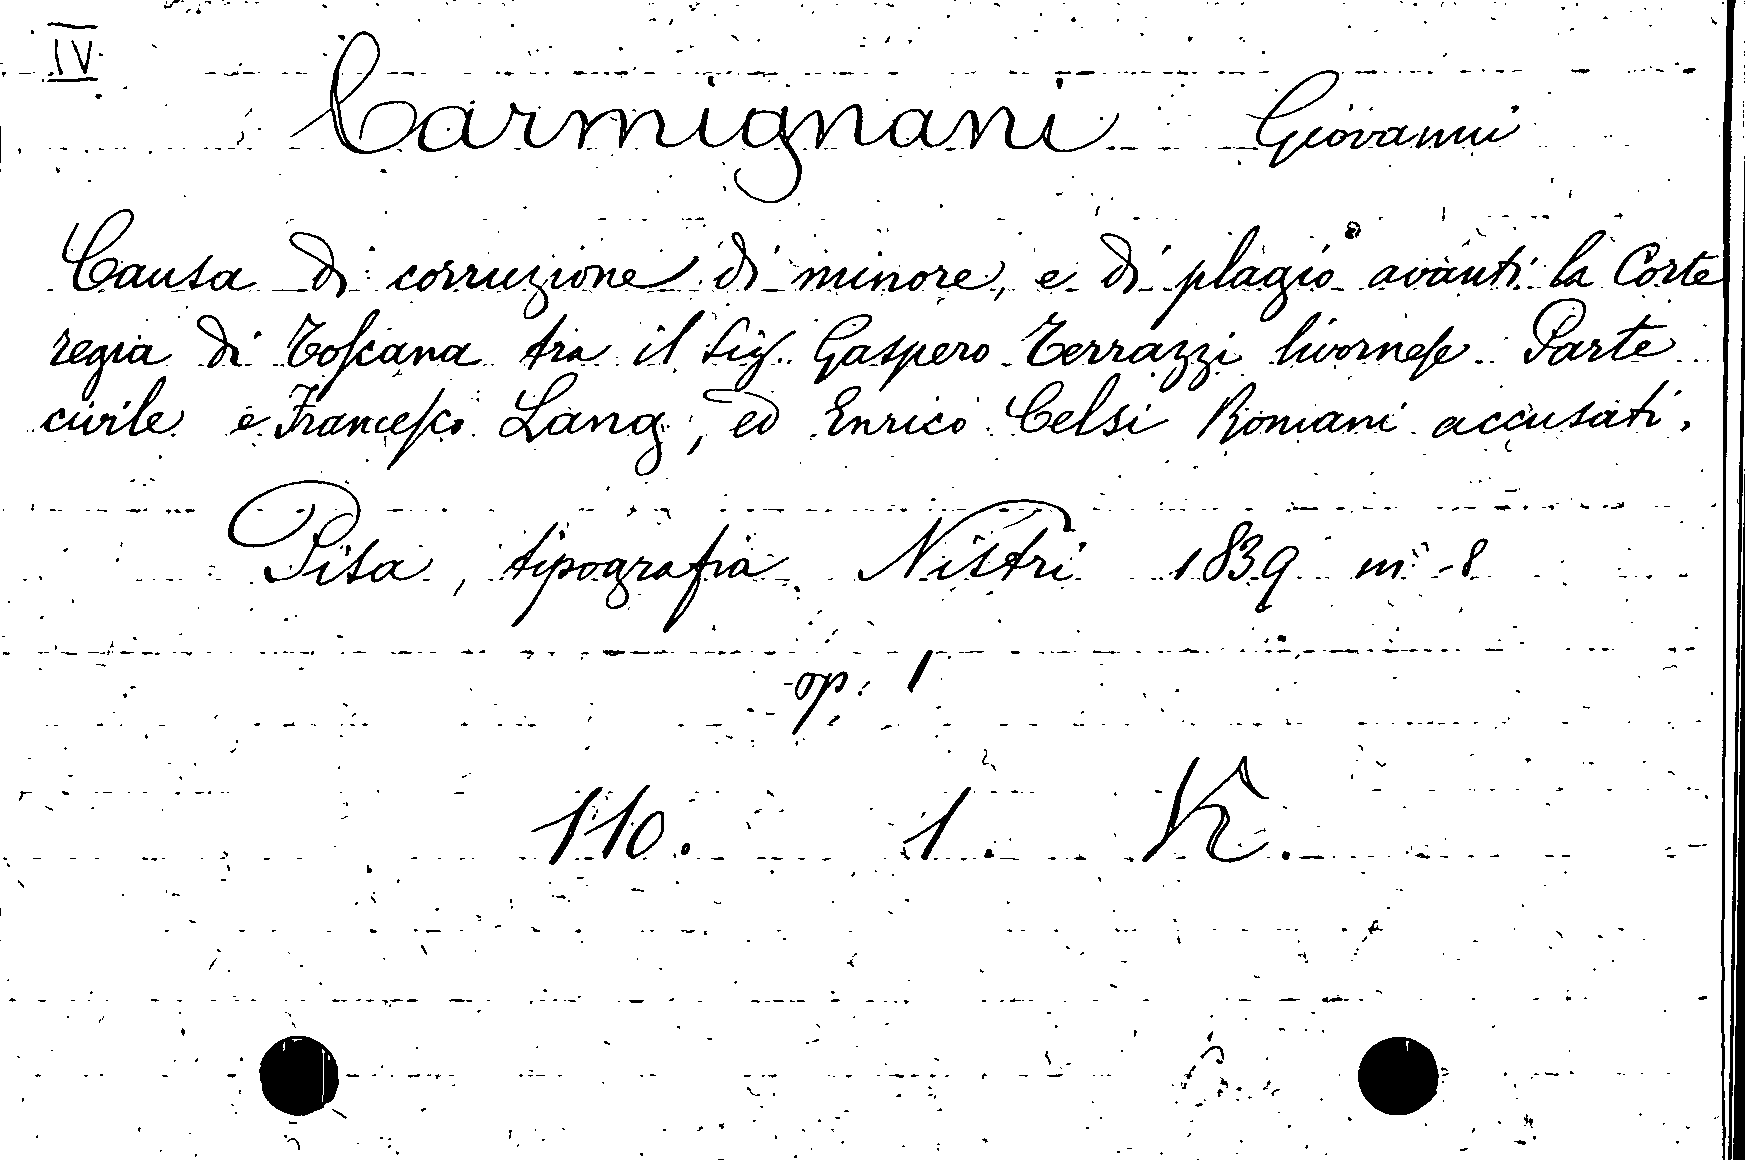 IV
Carmignani Giovanni
Causa di corruzione di minore, e di plagio avanti la Corte
regia di Toscana tra il Sig. Gaspero Terrazzi livornese Parte
civile e Francesco Lang, ed Enrico Celsi Romani accusati.
Pisa, tipografia Nistri 1839 in-8
op. 1
110. 1. K.